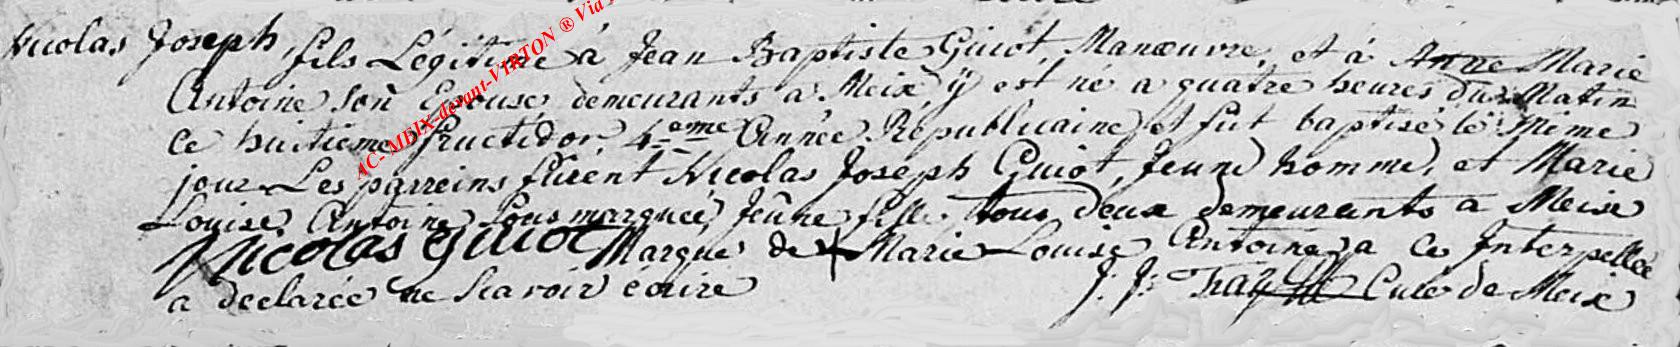 Nicolas Joseph, fils Légitime à Jean Baptiste Guiot, Manœuvre, et à Anne Marie
Antoine son Epouse demeurants a Meix ÿ est né a quatre heures du Matin
ce huitieme fructidor, 4eme Année Républicaine et fut baptisé le Même
jour Les parreins furent Nicolas Joseph Guiot, Jeune homme, et Marie
Louise Antoine sous marquée, Jeûne fille, tous deux demeurants a Meix
Nicolas Guiot Marque de + Marie Louise Antoine a ce Interpellée
a declarée ne Scavoir écrire J: J: Curé de Meix
AC- MEIX-devant-VIRTON ® Via